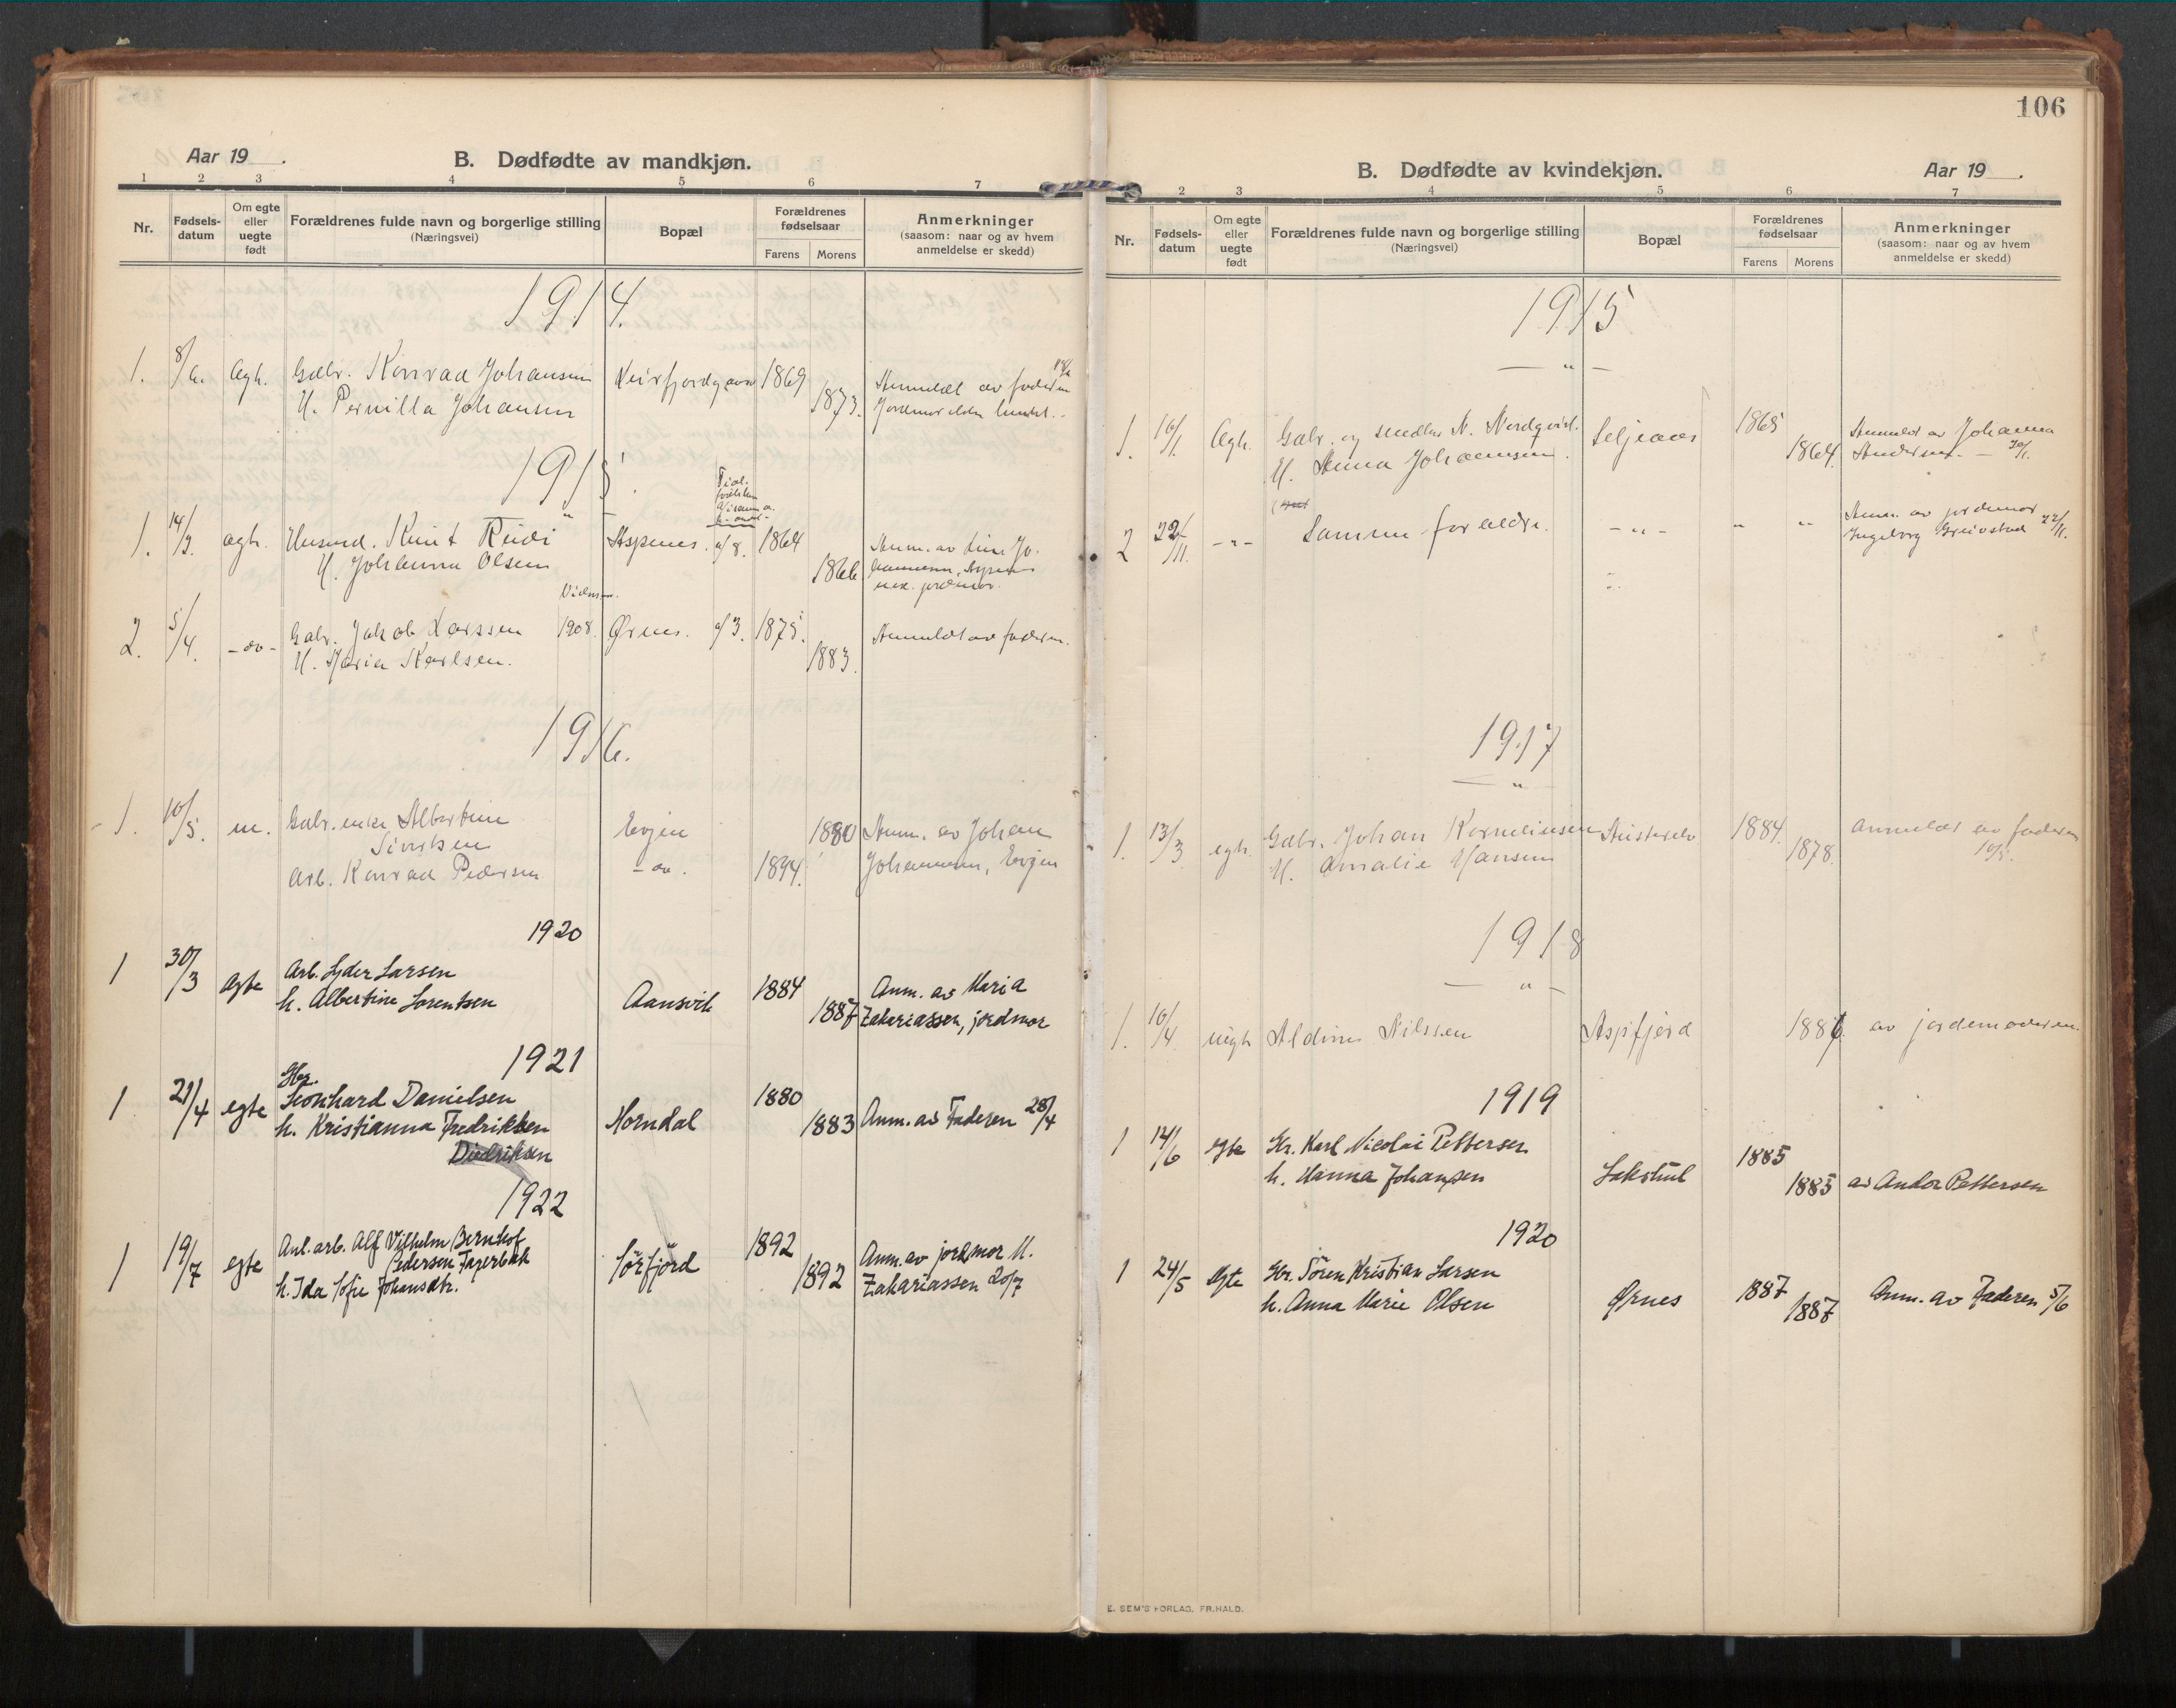 106
Aar 19 .
B. Dødfødte av mandkjøn.
1 2 3 4 5 6 7
Nr.
Fødsels-
datum
Om egte
eller
uegte
født
Forældrenes fulde navn og borgerlige stilling
(Næringsvei)
Bopæl
Forældrenes
fødselsaar
Farens Morens
Anmerkninger
(saasom: naar og av hvem
anmeldelse er skedd)
1914.
1. 8/6. Konrad Johansen 1869
H. Pernilla Johansen 1873.
Anmeldt av faderen
1915.
1. 14/2. Knut Aspenes. 1864
H. Johanna Olsen 1866
2. 5/4. - " - Gbr. Jakob Larssen 1908. Ørnes. 1875. Anmeldt av faderen.
H. Maria Karlsen. 1883.
1916.
1. 10/5. Gbr. enke Albertine Evjen 1880 Anm. av Johan
Sivertsen Johannesen, Evjen
Arb. Konrad Pedersen 1894.
1920
1 30/3 Egte Arb. Lyder Larsen Aansvik 1884 Anm. av Maria
h. Albertine Lorentsen 1887 Zakariassen, jordmor
1921
Gbr.
1 21/4 egte Leonhard Danielsen Horndal 1880
h. Kristianna Fredriksen 1883 Anm. av Faderen 28/4
Didriksen
1922
1 19/7 egte Anl. arb. Alf Vilhelm Bernhof Sörfjord 1892 Anm. av jordmor M.
Pedersen Fagerbak
h. Ida Sofie Johansdtr. 1892 Zakariassen 20/7
B. Dødfødte av kvindekjøn.
Aar 19 .
2 3 4 5 6 7
Nr.
Fødsels-
datum
Om egte
eller
uegte
født
Forældrenes fulde navn og borgerlige stilling
(Næringsvei)
Bopæl
Forældrenes
fødselsaar
Farens Morens
Anmerkninger
(saasom: naar og av hvem
anmeldelse er skedd)
1915
— " —
1. 16/1. Gbr. og N. Nordqvist. Seljeaas 1865 Anmeldt av Johanna
H. Anna Johannesen. 1864. Andersen
2 22/11. - " - Samme forældre. - " - " " Anm. av jordmor
Ingeborg 22/11.
1917
— " —
1. 13/3 Gbr. Johan Korneliussen 1884. Anmeldt av faderen
H. Amalie Hansen 1878.
1918
— " —
1. 10/4. Aldine Nilssen Aspfjord av jordemoderen.
1919
1 12/6 egte Gbr. Karl Nicolai Pettersen 1885
h. Hanna Johansen Lakshul 1885 av Andor Pettersen
1920
1 24/5 Egte Gbr. Sören Kristian Larsen Ørnes 1887 Anm. av Faderen 5/6
h. Anna Marie Olsen 1887
E. SEM'S FORLAG, FR.HALD.